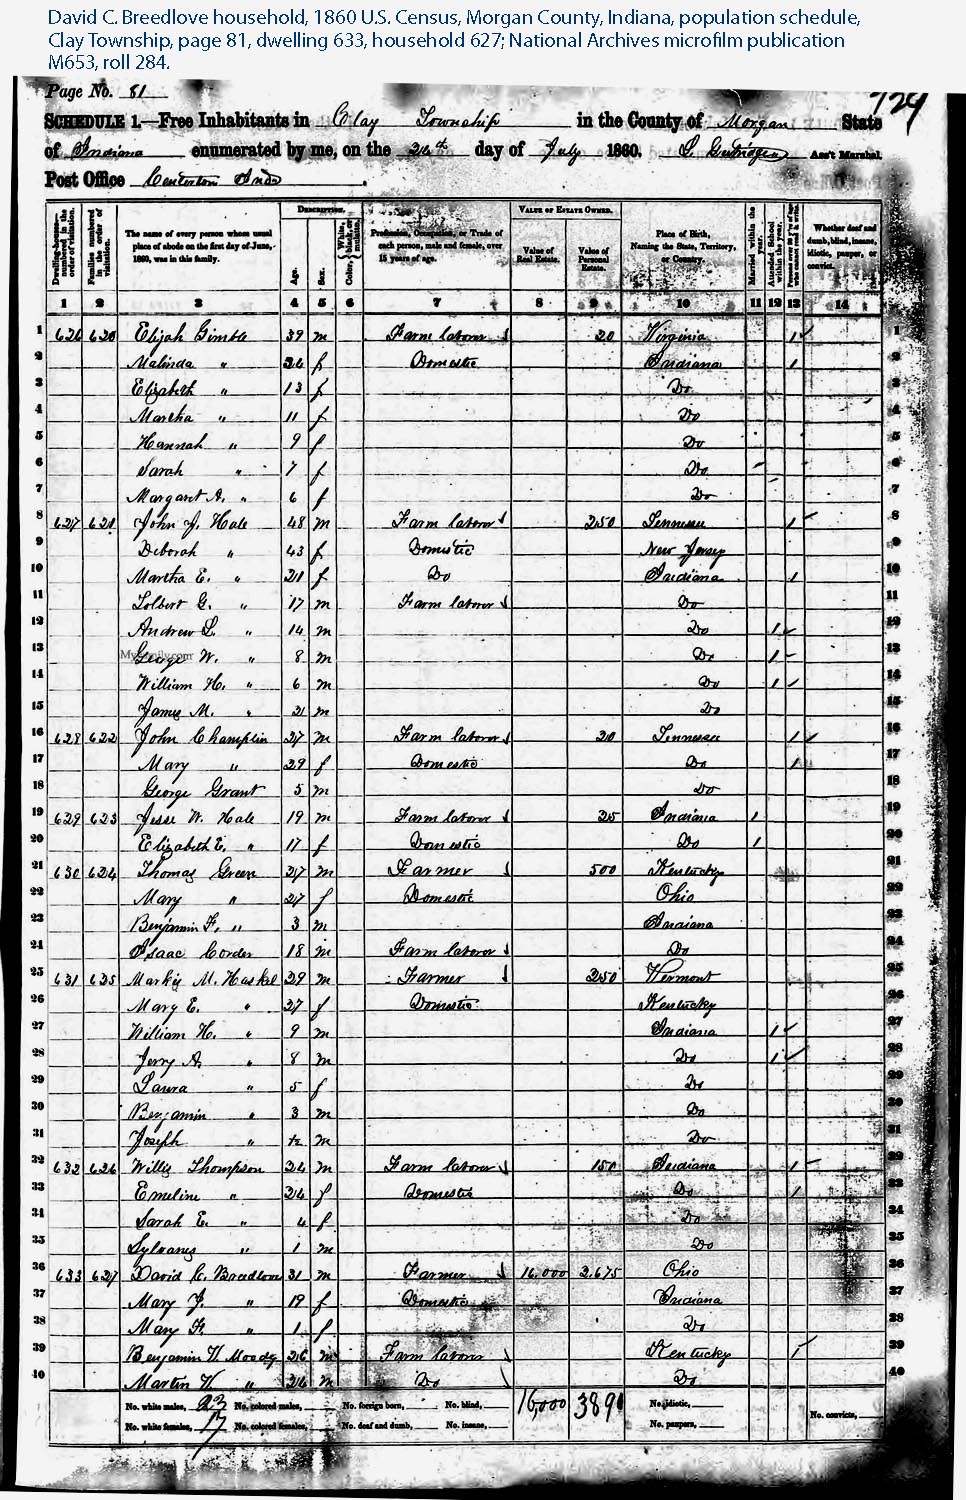 David C. Breedlove household, 1860 U.S. Census, Morgan County, Indiana, population schedule,
Clay Township, page 81, dwelling 633, household 627; National Archives microfilm publication
M653, roll 284.
Page No. 81
729
SCHEDULE 1.—Free Inhabitants in Clay Township in the County of Morgan State
of Indiana enumerated by me, on the 24th day of July 1860. Ass't Marshal.
Post Office Centerton Inda
Dwelling-houses— numbered in the order of visitation.
Families numbered in the order of visitation.
The name of every person whose usual place of abode on the first day of June, 1860, was in this family.
DESCRIPTION.
Age.
Sex.
Color, White, black, or mulatto.
Profession, Occupation, or Trade of each person, male and female, over 15 years of age.
VALUE OF ESTATE OWNED.
Value of Real Estate.
Value of Personal Estate.
Place of Birth, Naming the State, Territory, or Country.
Married within the year.
Attended School within the year.
Whether deaf and dumb, blind, insane, idiotic, pauper, or convict.
1 2 3 4 5 6 7 8 9 10 11 12 13 14
1 626 620 Elijah Gimble 39 m Farm laborer 20 Virginia 1 1
2 Malinda " f Domestic Indiana 1 2
3 Elizabeth " 13 f Do 3
4 Martha " 11 f Do 4
5 Hannah " 9 f Do 5
6 Sarah " 7 f Do 6
7 Margaret A. " 6 f Do 7
8 627 621 John J. Hale 48 m Farm laborer 250 Tennessee 1 8
9 Deborah " 43 f Domestic New Jersey 9
10 Martha E. " 21 f Do Indiana 1 10
11 Tolbert G. " 17 m Farm laborer Do 11
12 Andrew L. " 14 m Do 1 12
13 George W. " 8 m Do 1 13
MyFamily.com
14 William H. " 6 m Do 1 14
15 James M. " 2 m Do 15
16 628 622 John Champlin 27 m Farm laborer 20 Tennessee 1 16
17 Mary " 29 f Domestic Do 1 17
18 George Grant 5 m Do 18
19 629 623 Jesse W. Hale 19 m Farm laborer 25 Indiana 1 19
20 Elizabeth E. " 17 f Domestic Do 1 20
21 630 624 Thomas Green 27 m Farmer 500 Kentucky 21
22 Mary " 27 f Domestic Ohio 22
23 Benjamin F. " 3 m Indiana 23
24 Isaac Corder 18 m Farm laborer Do 24
25 631 625 M. Haskel 29 m Farmer 250 Vermont 25
26 Mary E. " 27 f Domestic Kentucky 26
27 William H. " 9 m Indiana 1 27
28 Jerry A. " 8 m Do 1 28
29 Laura " 5 f Do 29
30 Benjamin " 3 m Do 30
31 Joseph " m Do 31
32 632 626 Willis Thompson 24 m Farm laborer 150 Indiana 1 32
33 Emeline " 24 f Domestic Do 1 33
34 Sarah E. " 4 f Do 34
35 Sylvanus " 1 m Do 35
36 633 627 David C. Breedlove 31 m Farmer 16,000 2,675 Ohio 36
37 Mary J. " 19 f Domestic Indiana 37
38 Mary " 1 f Do 38
39 Benjamin H. Moody 26 m Farm laborer Kentucky 1 39
40 Martin H. " m Do Do 40
No. white males, 23 No. colored males, No. foreign born, No. blind, 16,000 3890 No. idiotic,
No. white females, 17 No. colored females, No. deaf and dumb, No. insane, No. paupers, No. convicts,